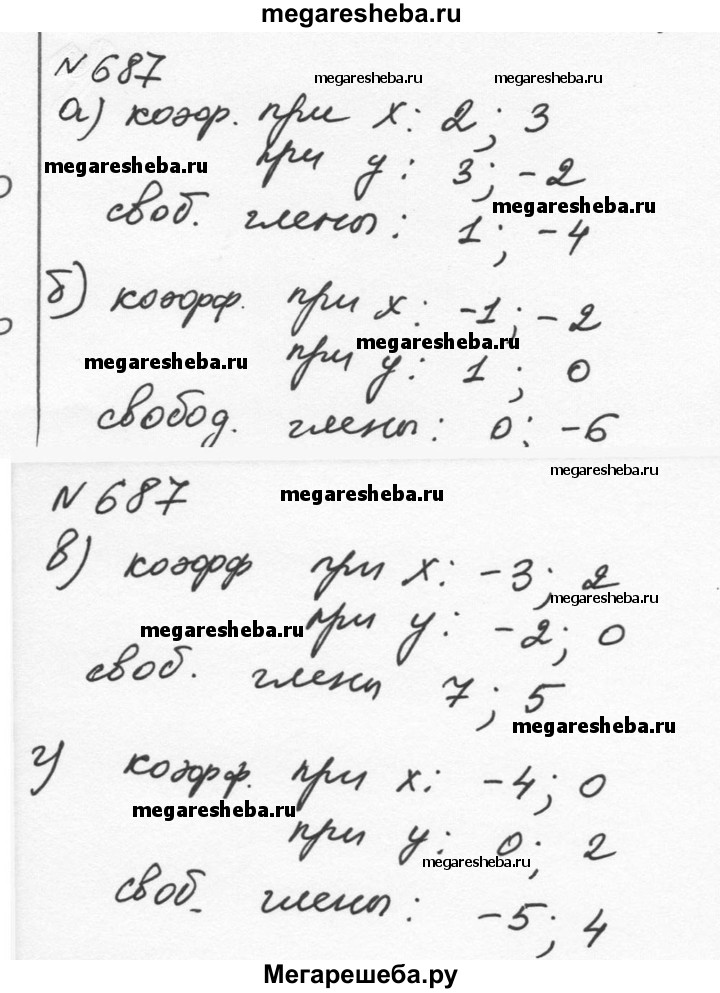 megaresheba.ru
N 687
megaresheba.ru megaresheba.ru
а) коэф. при x: 2; 3
megaresheba.ru
при y: 3; -2
своб. члены: 1; -4
megaresheba.ru
б) коэфф. при x: -1; -2
megaresheba.ru
при y: 1; 0
megaresheba.ru
свобод. члены: 0; -6
megaresheba.ru
N 687
megaresheba.ru
в) коэфф при x: -3; 2
megaresheba.ru
при y: -2; 0
megaresheba.ru
своб. члены 7; 5
megaresheba.ru
г) коэфф. при x: -4; 0
megaresheba.ru
при y: 0; 2
megaresheba.ru
своб. члены: -5; 4
Мегарешеба.ру